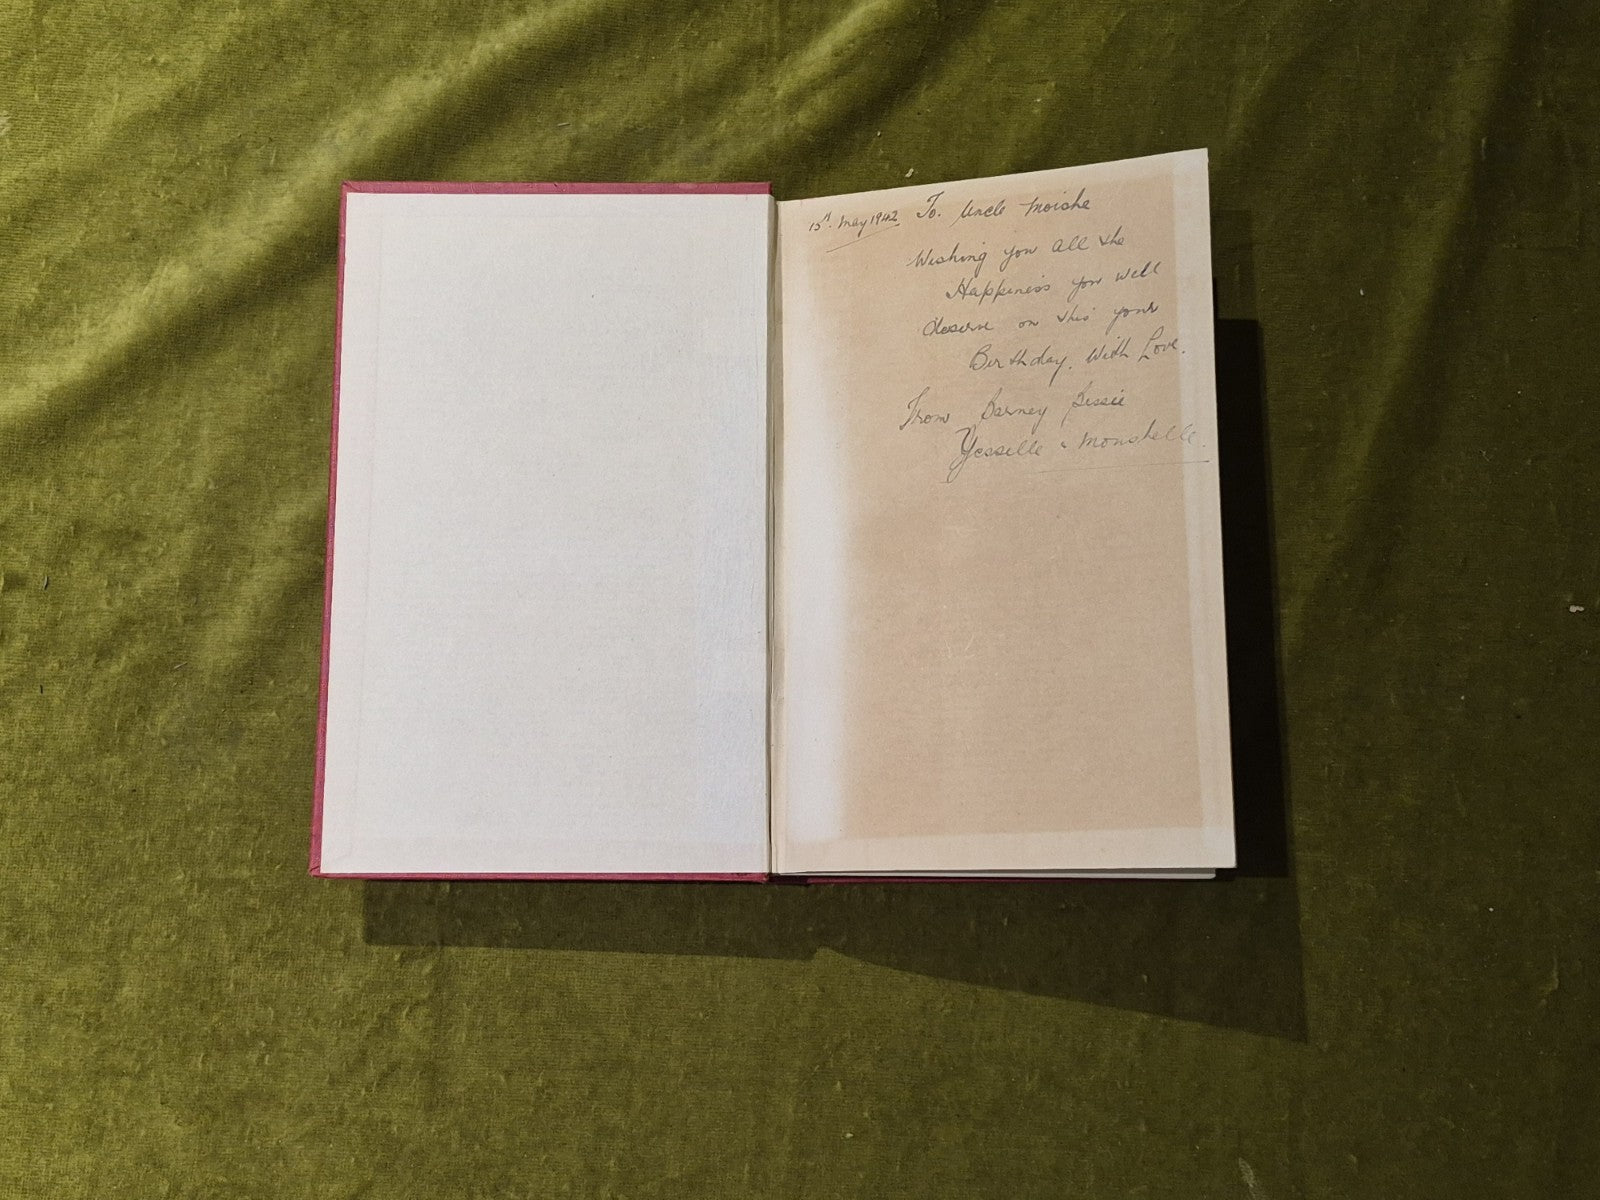 15th. May 1942 To. Uncle Moishe
Wishing you all the
Happiness you well
deserve on this your
Birthday. With Love.
From Barney Bessie
Yesselle & Monshelle.